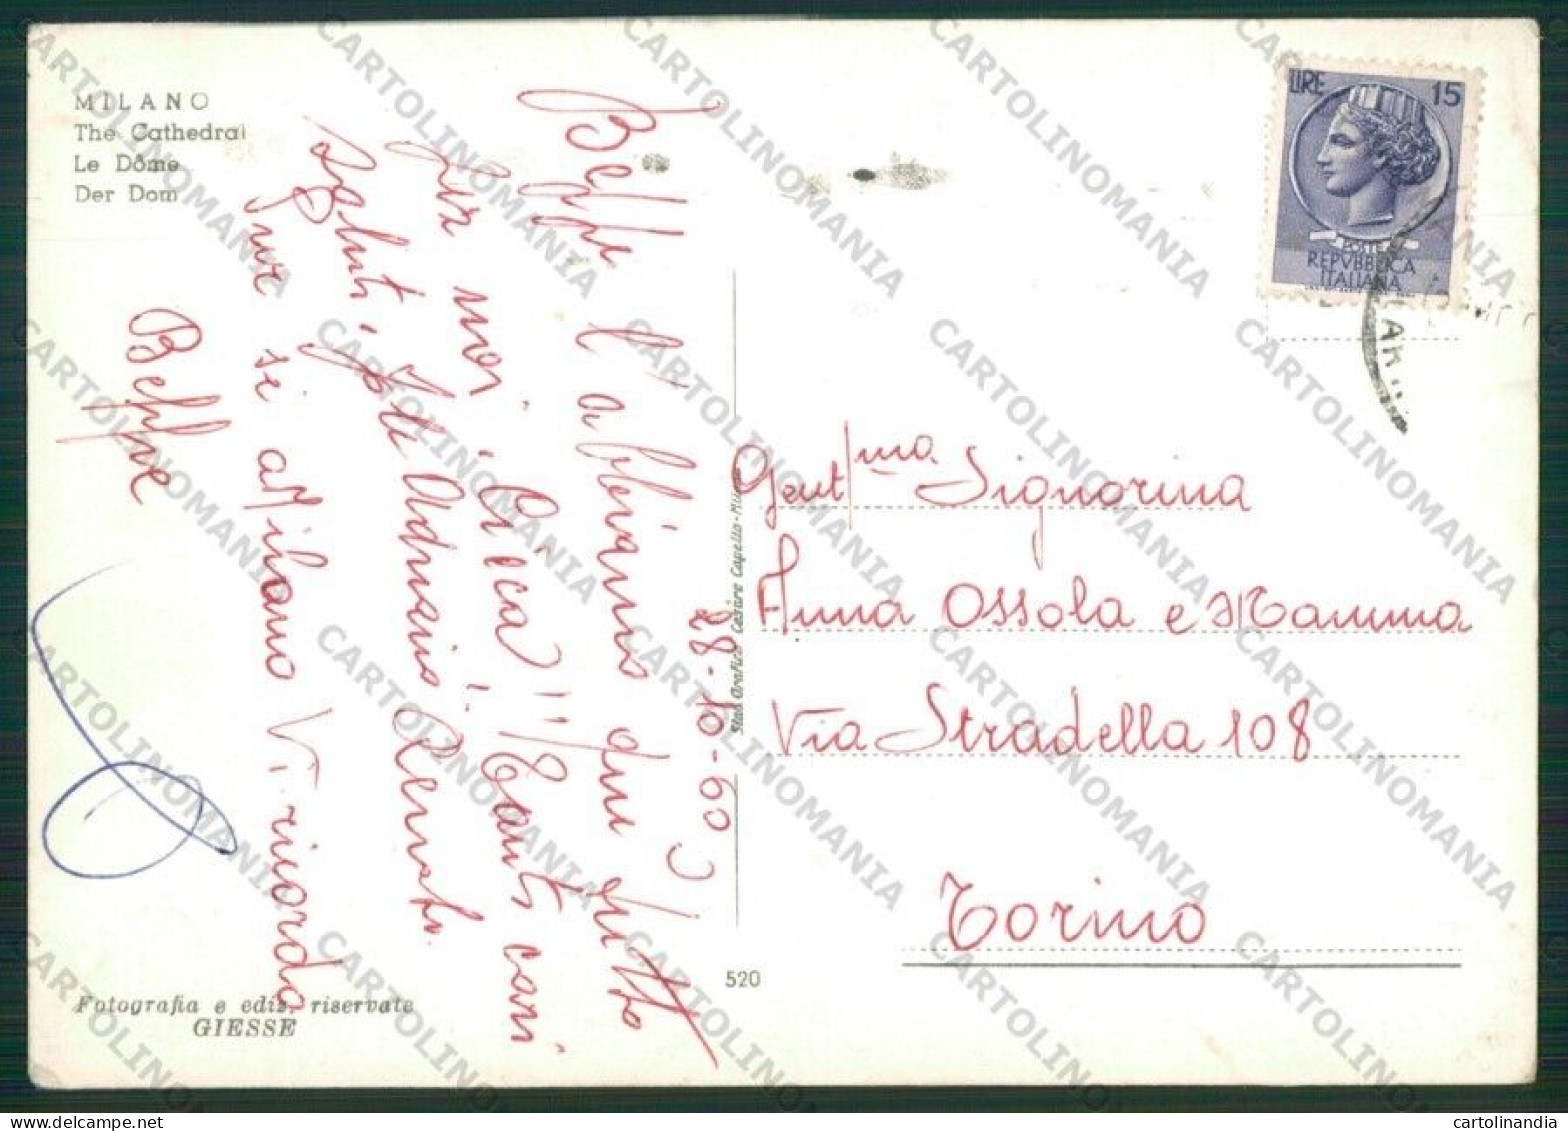 MILANO
The Cathedral
Le Dôme
Der Dom
LIRE 15
POSTE
REPVBBLICA
ITALIANA
28-10-60
Beppe l'abbiamo
per noi
Tanti cari
saluti
Adriano Renato
pur se a Milano Vi ricorda
Beppe
Gent/ma Signorina
Anna Ossola e Mamma
Via Stradella 108
Torino
Stab. Grafico Cesare Capello - Milano
520
Fotografia e ediz. riservate
GIESSE
CARTOLINOMANIA
cartolinandia